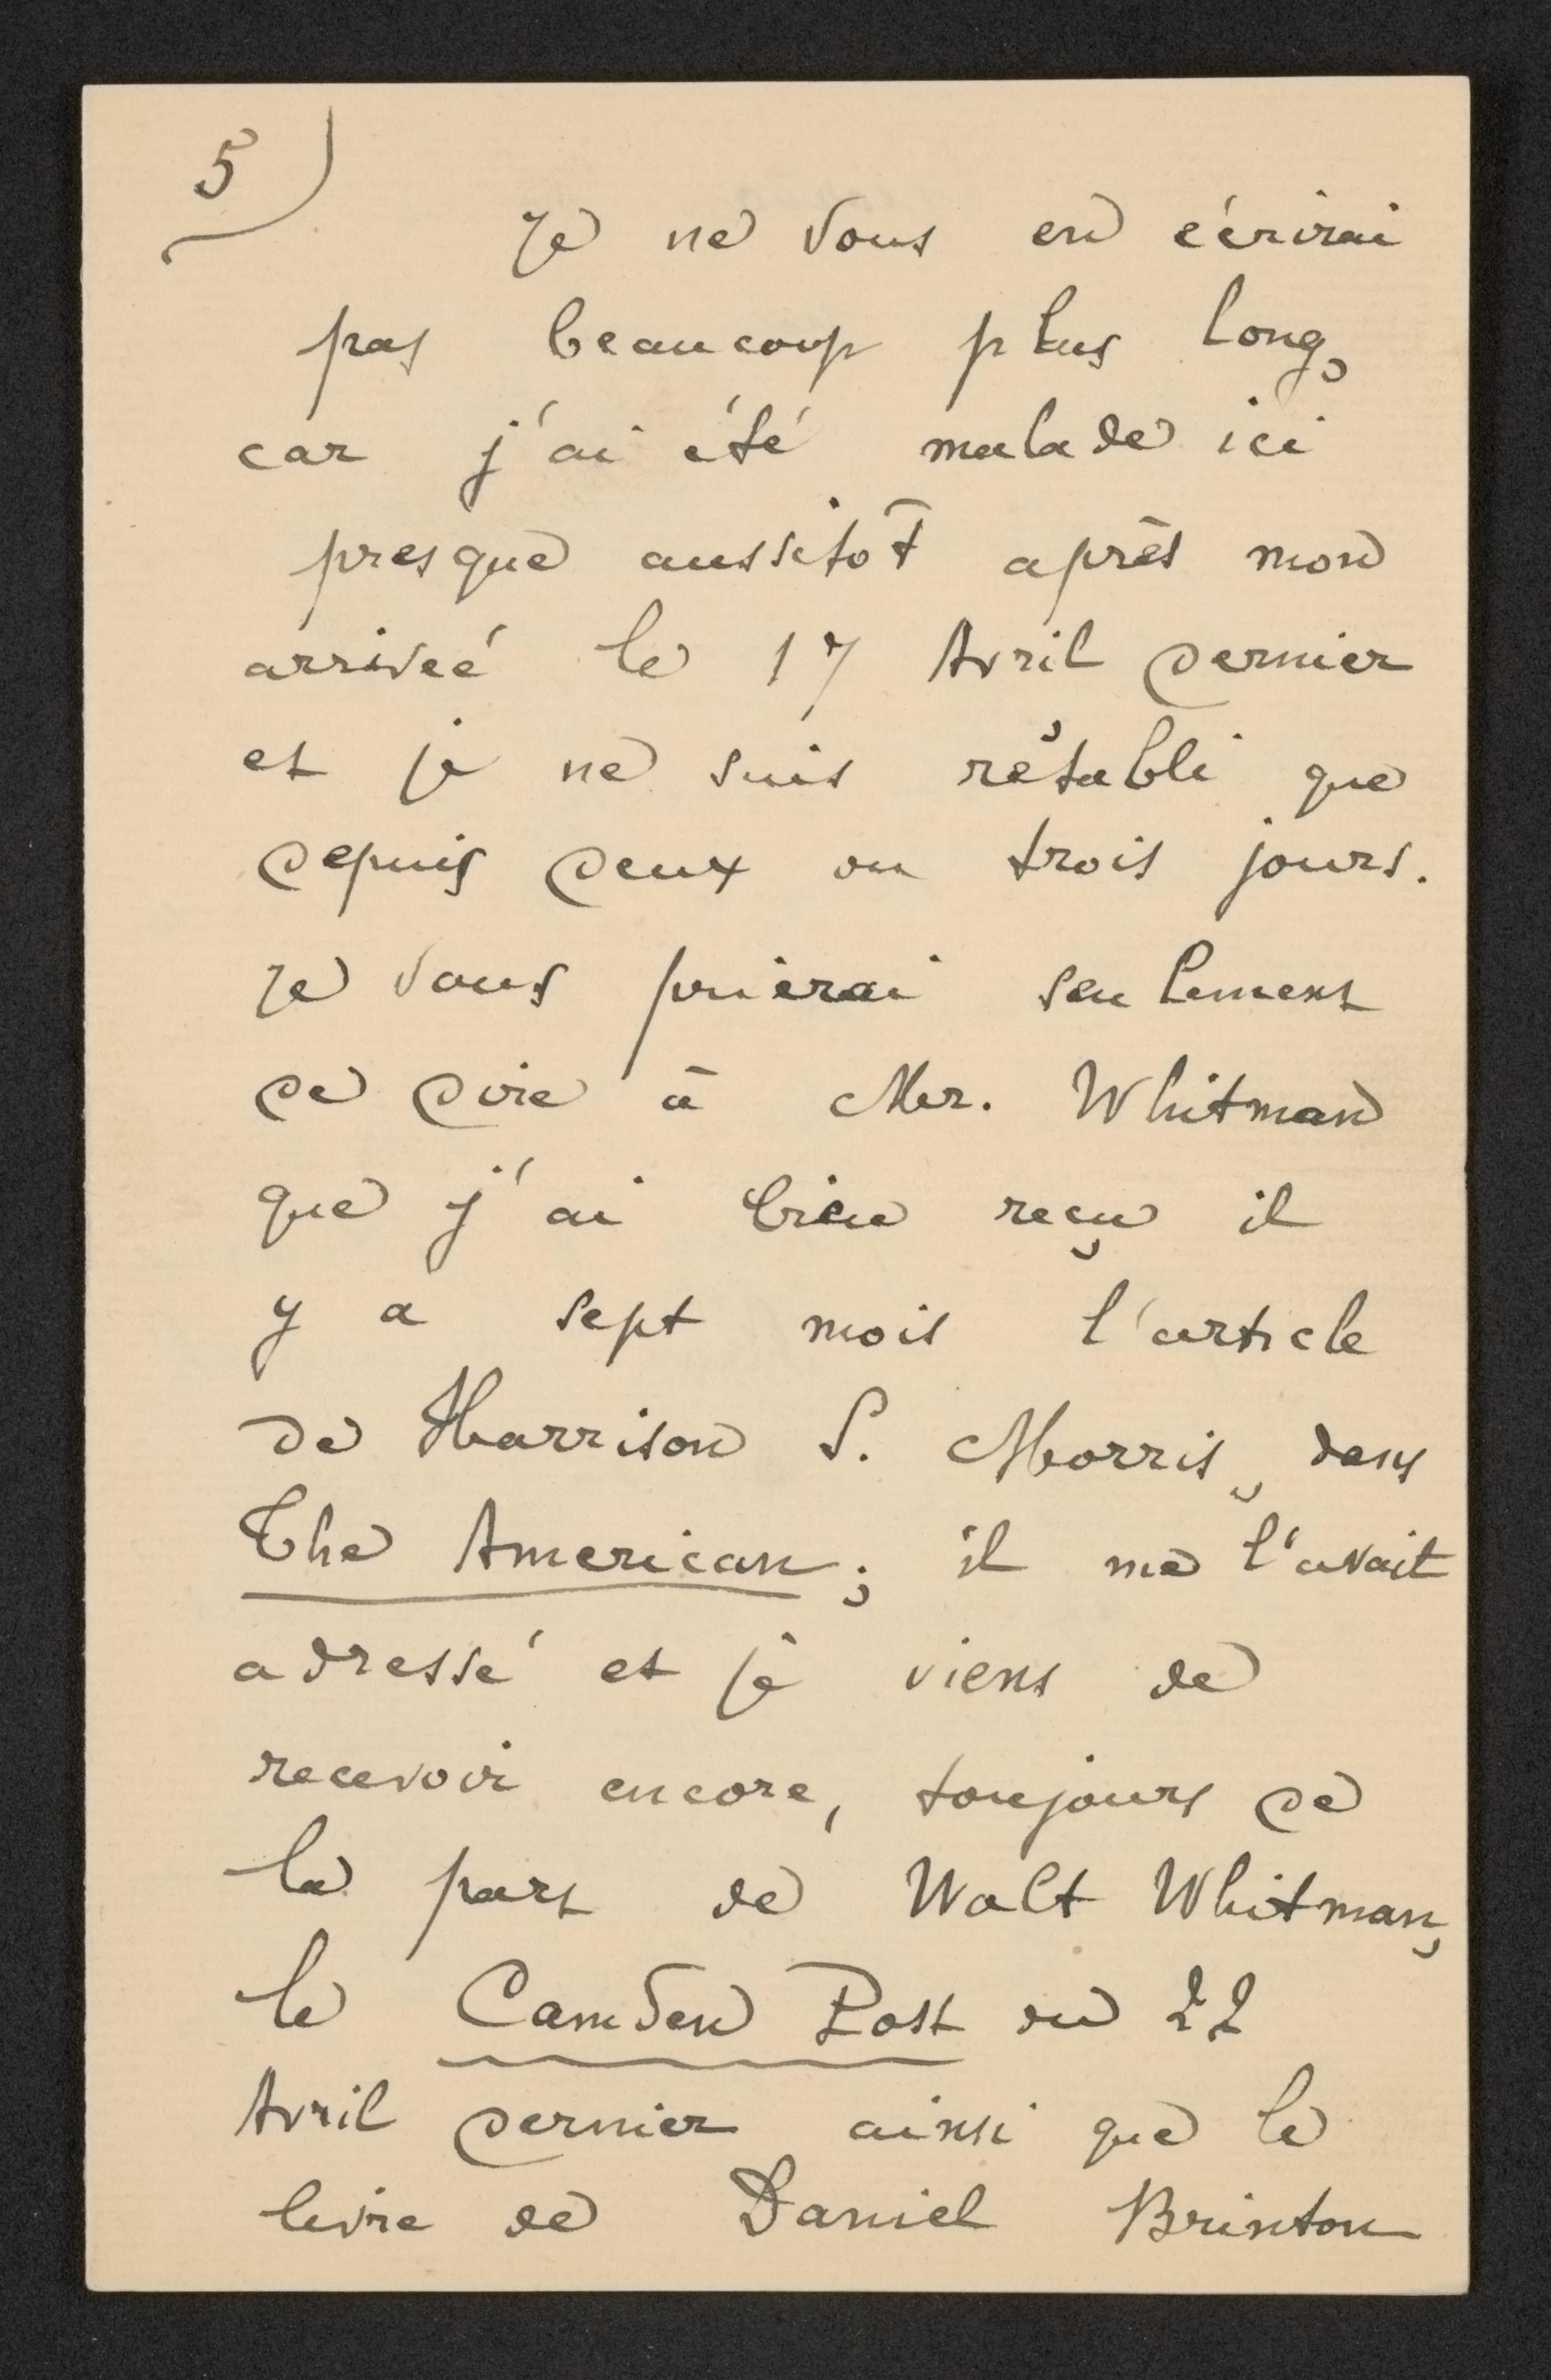 5)
Je ne vous en écrirai
pas beaucoup plus long,
car j'ai été malade ici
presque aussitôt après mon
arrivée le 17 Avril dernier
et je ne suis rétabli que
depuis deux ou trois jours.
Je vous prierai seulement
de dire à Mr. Whitman
que j'ai bien reçu il
y a sept mois l'article
de Harrison S. Morris, dans
The American; il me l'avait
adressé et je viens de
recevoir encore, toujours de
la part de Walt Whitman,
le Camden Post du 22
Avril dernier ainsi que le
livre de Daniel Brinton